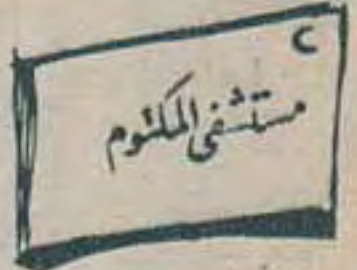 ٢
مستشفى المكتوم